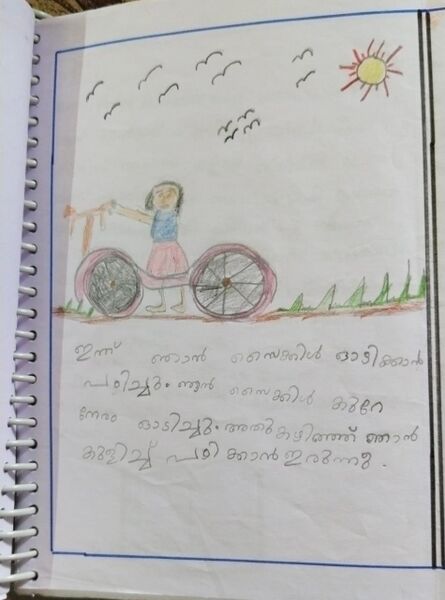 ഇന്ന് ഞാൻ സൈക്കിൾ ഓടിക്കാൻ
പഠിച്ചു. ഞാൻ സൈക്കിൾ കുറേ
നേരം ഓടിച്ചു. അതു കഴിഞ്ഞ് ഞാൻ
കുളിച്ച് പഠിക്കാൻ ഇരുന്നു.